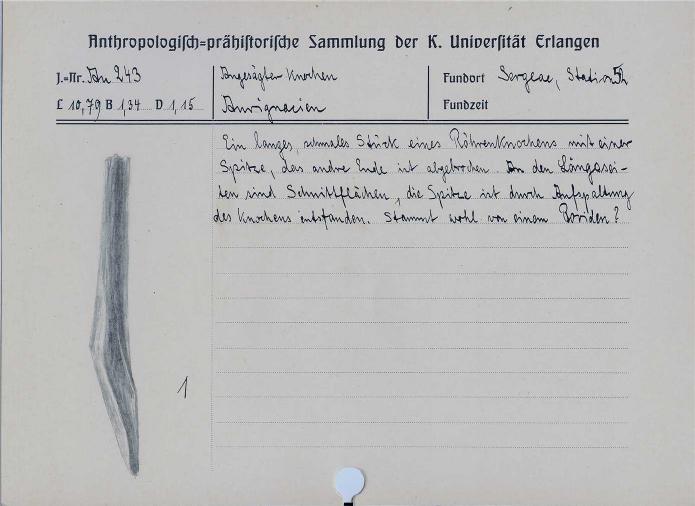 Anthropologisch=prähistorische Sammlung der K. Universität Erlangen
J.=Nr. Au 243
Angesägter Knochen
Fundort Sergeac, Station
L 10,79 B 1,34 D 1,15
Aurignacien
Fundzeit
Ein langes, schmales Stück eines Röhrenknochens mit einer
Spitze, das andre Ende ist abgebrochen. An den Längssei-
ten sind Schnittflächen, die Spitze ist durch Aufspaltung
des Knochens entstanden. Stammt wohl von einem Boviden?
1